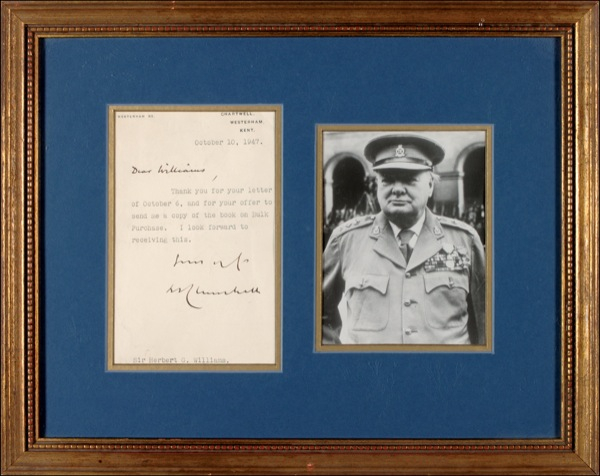 WESTERHAM 93.
CHARTWELL,
WESTERHAM,
KENT.
October 10, 1947.
Dear Williams,
Thank you for your letter
of October 6, and for your offer to
send me a copy of the book on Bulk
Purchase. I look forward to
receiving this.
Winston S. Churchill
Sir Herbert G. Williams.